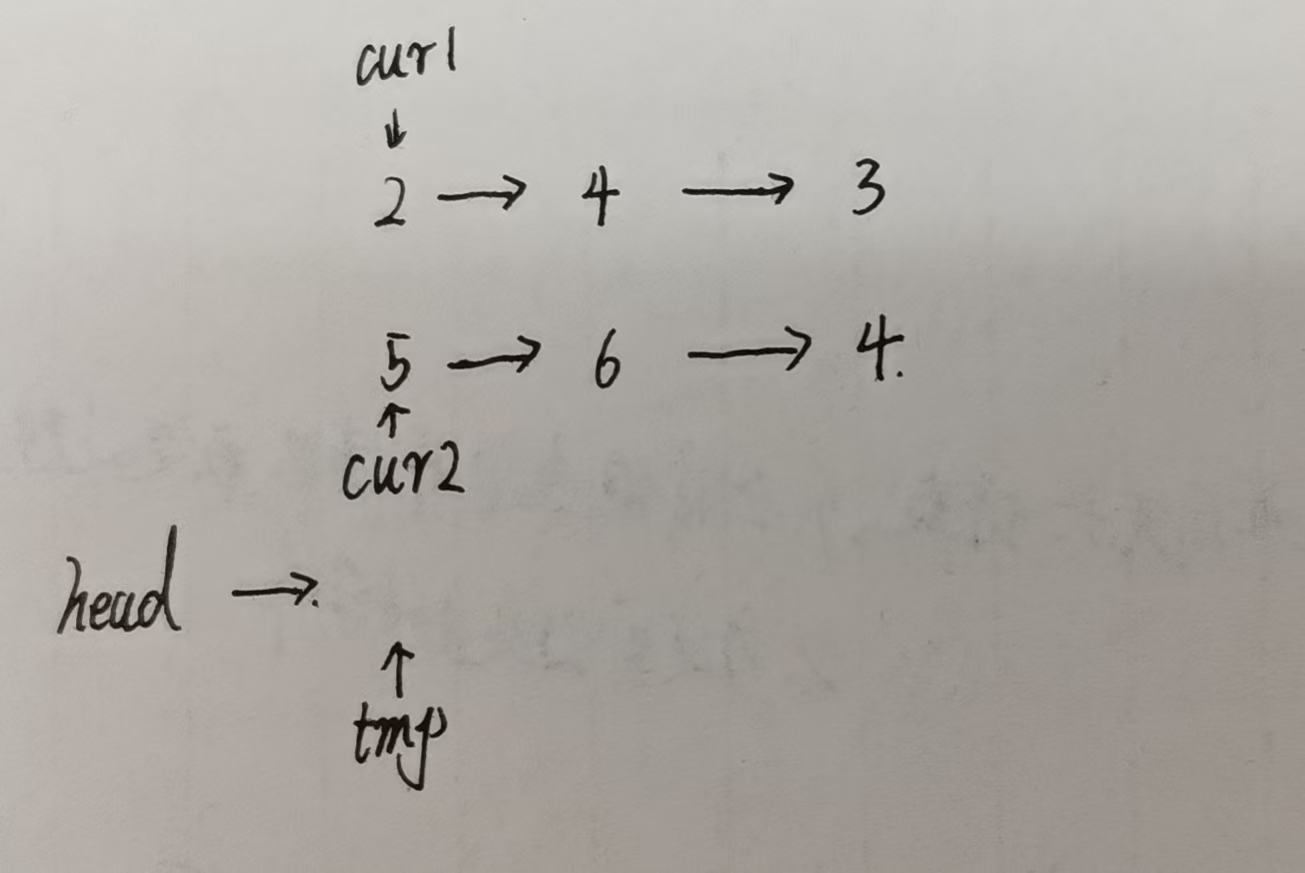 cur1
↓
2 → 4 → 3
5 → 6 → 4.
↑
cur2
head →.
↑
tmp